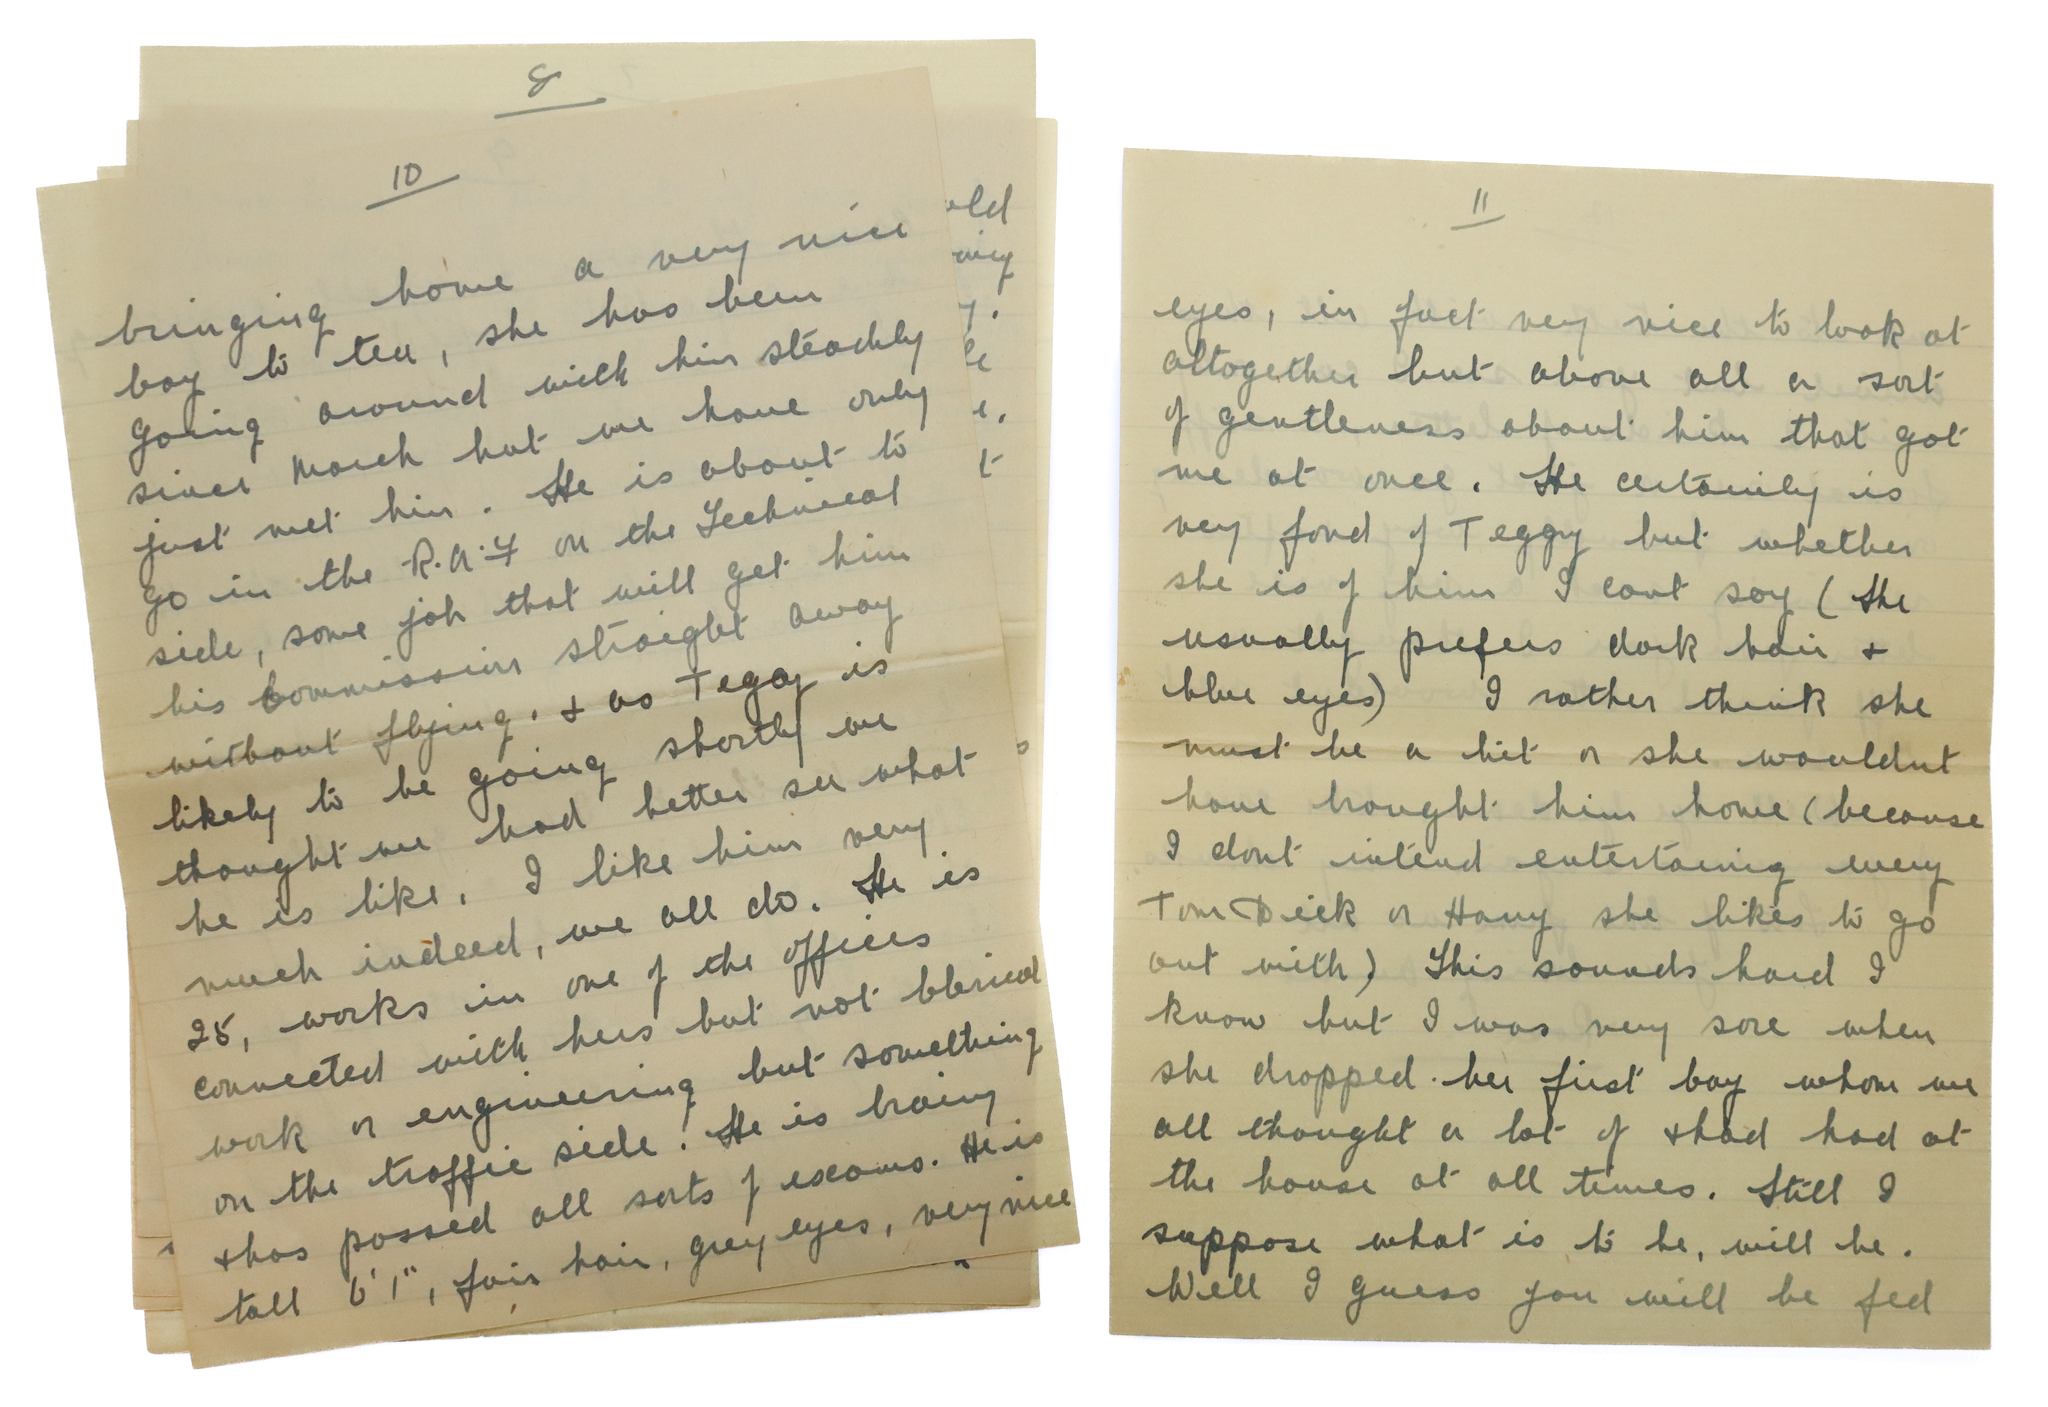 8
10
bringing home a very nice
boy to tea, she has been
going around with him steadily
since March but we have only
just met him. He is about to
go in the R.A.F on the Technical
side, some job that will get him
his Commission straight away
without flying. + as Teggy is
likely to be going shortly we
thought we had better see what
he is like. I like him very
much indeed, we all do. He is
25, works in one of the offices
connected with hers but not clerical
work or engineering but something
on the traffic side. He is brainy
+ has passed all sorts of exams. He is
tall 6'1", fair hair, grey eyes, very nice
11
eyes, in fact very nice to look at
altogether but above all a sort
of gentleness about him that got
me at once. He certainly is
very fond of Teggy but whether
she is of him I cant say (She
usually prefers dark hair +
blue eyes) I rather think she
must be a bit or she wouldnt
have brought him home (because
I dont intend entertaing every
Tom Dick or Harry she likes to go
out with) This sounds hard I
know but I was very sore when
she dropped her first boy whom we
all thought a lot of + had had at
the house at all times. Still I
suppose what is to be, will be.
Well I guess you will be fed